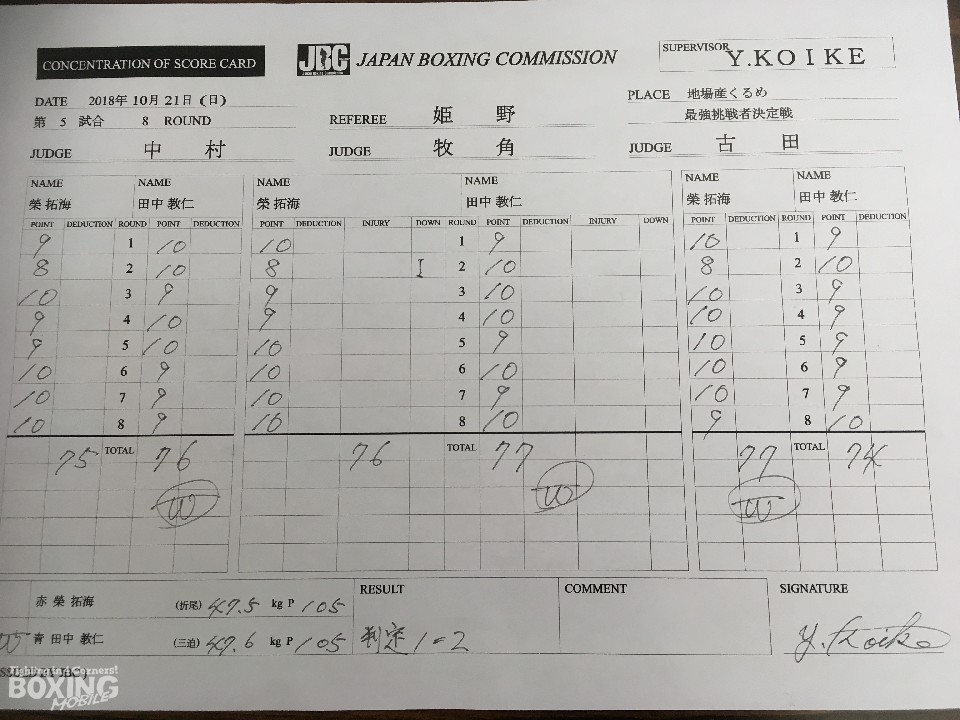 CONCENTRATION OF SCORE CARD
JBC JAPAN BOXING COMMISSION
SUPERVISOR Y.KOIKE
DATE 2018年 10月 21日 (日)
PLACE 地場産くるめ
第 5 試合 8 ROUND
REFEREE 姫 野
最強挑戦者決定戦
JUDGE 中 村
JUDGE 牧 角
JUDGE 古 田
NAME NAME NAME NAME NAME NAME
榮 拓海 田中 教仁 榮 拓海 田中 教仁 榮 拓海 田中 教仁
POINT DEDUCTION ROUND POINT DEDUCTION POINT DEDUCTION INJURY DOWN ROUND POINT DEDUCTION INJURY DOWN POINT DEDUCTION ROUND POINT DEDUCTION
9 1 10 10 1 9 10 1 9
8 2 10 8 I 2 10 8 2 10
10 3 9 9 3 10 10 3 9
9 4 10 9 4 10 10 4 9
9 5 10 10 5 9 10 5 9
10 6 9 10 6 10 10 6 9
10 7 9 10 7 9 10 7 9
10 8 9 10 8 10 9 8 10
75 TOTAL 76 76 TOTAL 77 77 TOTAL 74
W W W
赤 榮 拓海 (折尾) 47.5 kg P 105
W 青 田中 教仁 (三迫) 47.6 kg P 105
RESULT
判定 1-2
COMMENT
SIGNATURE
Y. Koike
Fighting in 4 Corners!
BOXING
MOBILE